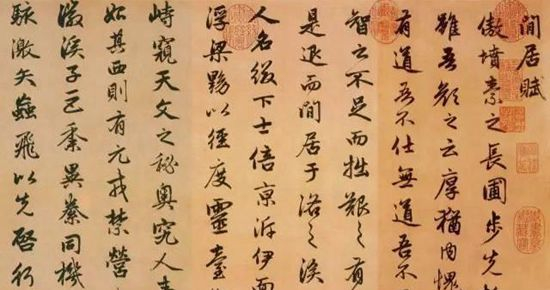 閒居賦
傲墳素之長圃步先
雖吾顏之云厚猶內愧
有道吾不仕無道吾不
智之不足而拙艱之有
是退而閒居于洛之涘
人名綴下士倍京泝伊面
浮梁黝以徑度靈臺
峙窺天文之秘奧究人
始其西則有元戎禁營
徽溪子巨黍異絭同機
駭激矢蝱飛以先啓行